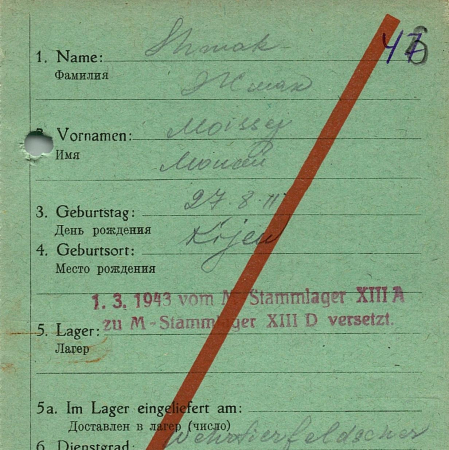 47
1. Name: Shmak
Фамилия Жмак
Vornamen: Moissej
Имя Моисей
3. Geburtstag: 27.8.11
День рождения
4. Geburtsort: Kijew
Место рождения
1. 3. 1943 vom M-Stammlager XIII A
zu M-Stammlager XIII D versetzt.
5. Lager:
Лагерь
5a. Im Lager eingeliefert am:
Доставлен в лагерь (число)
6. Dienstgrad: